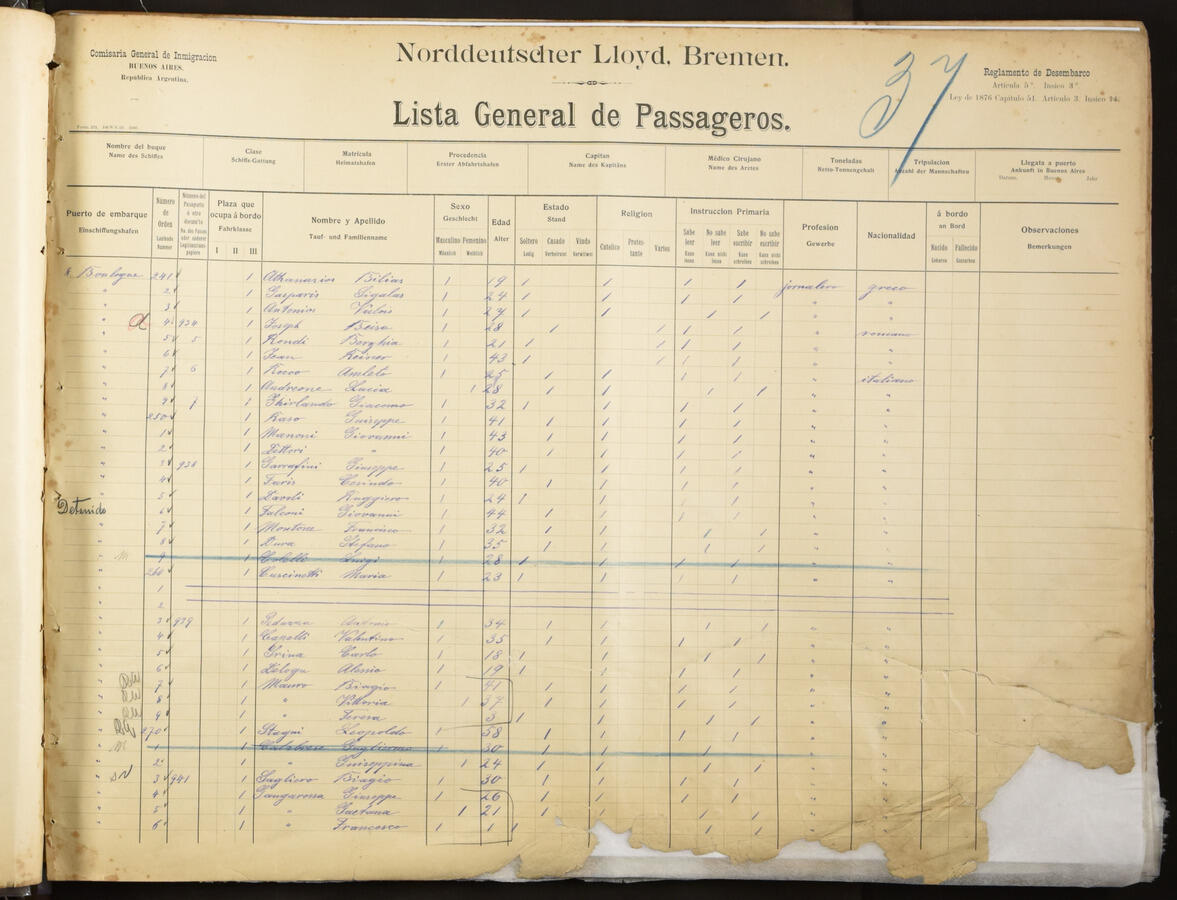 Comisaria General de Inmigracion
BUENOS AIRES.
Republica Argentina.
Norddeutscher Lloyd, Bremen.
Lista General de Pasageros.
37
Reglamento de Desembarco
Articula 5° Insico 3°
Ley de 1876 Capitulo 51. Artículo 3. Insico 14.
Nombre del buque
Name des Schiffes
Clase
Schiffs-Gattung
Matrícula
Heimatshafen
Procedencia
Erster Abfahrtshafen
Capitan
Name des Kapitäns
Médico Cirujano
Name des Arztes
Toneladas
Netto-Tonnengehalt
Tripulacion
Anzahl der Mannschaften
Llegata a puerto
Ankunft in Buenos Aires
Datum. Jahr
Puerto de embarque
Einschiffungshafen
Número de Orden
Laufende Nummer
Plaza que ocupa á bordo
Fahrklasse
I II III
Nombre y Apellido
Tauf- und Familienname
Sexo
Geschlecht
Masculino Femenino
Männlich Weiblich
Edad
Alter
Estado
Stand
Soltero Casado Viudo
Ledig Verheiratet Verwitwet
Religion
Catolico Protestante Varios
Instruccion Primaria
Sabe leer No sabe leer Sabe escribir No sabe escribir
Kann lesen Kann nicht lesen Kann schreiben Kann nicht schreiben
Profesion
Gewerbe
Nacionalidad
á bordo
an Bord
Nacido Fallecido
Geboren Gestorben
Observaciones
Bemerkungen
Boulogne 241 1 Athanasios Bilias 1 19 1 1 1 1 jornalero greco
" 2 1 Gasparis Sigalas 1 24 1 1 1 1 " "
" 3 1 Antonios 1 27 1 1 1 1 " "
" 4 934 1 Joseph 1 28 1 1 1 1 " romano
" 5 5 1 Berghia 1 21 1 1 1 1 " "
" 6 1 Jean Reiner 1 43 1 1 1 1 " "
" 7 6 1 Amleto 1 25 1 1 1 1 " italiano
" 8 1 Andreone Lucia 1 28 1 1 1 1 " "
" 9 7 1 Ghirlando Giacomo 1 32 1 1 1 1 " "
" 250 1 Raso Guiseppe 1 41 1 1 1 1 " "
" 1 1 Manoni Giovanni 1 43 1 1 1 1 " "
" 2 1 Zettori " 1 40 1 1 1 1 " "
" 3 936 1 Garrafini Giuseppe 1 25 1 1 1 1 " "
" 4 1 Turis 1 40 1 1 1 1 " "
" 5 1 Zavoli Ruggiero 1 24 1 1 1 1 " "
Detenido 6 1 Falconi Giovanni 1 44 1 1 1 1 " "
" 7 1 Montone Francisco 1 32 1 1 1 1 " "
" 8 1 Dura Stefano 1 35 1 1 1 1 " "
" 9 1 Luigi 1 28 1 1 1 1 "
" 260 1 Cuscinotti Maria 1 23 1 1 1 1 " "
1
2
" 3 939 1 1 34 1 1 1 1 " "
" 4 1 Capelli Valentino 1 35 1 1 1 1 " "
" 5 1 Grina Carlo 1 18 1 1 1 1 " "
" 6 1 Zelogu Alessio 1 19 1 1 1 1 " "
" 7 1 Mauro Biagio 1 41 1 1 1 1 " "
" 8 1 " Vittoria 1 37 1 1 1 1 " "
" 9 1 " Teresa 1 5 1 1 1 1 " "
" 270 1 Stagni Leopoldo 1 58 1 1 1 1 " "
" 1 1 Calabrese Guglielmo 1 30 1 1 1 1 "
" 2 1 " Guiseppina 1 24 1 1 1 1 " "
" 3 941 1 Gagliero Biagio 1 30 1 1 1 1 " "
" 4 1 Gangarossa Giuseppe 1 26 1 1 1 1 " "
" 5 1 " Gaetana 1 21 1 1 1 1 " "
" 6 1 " Francesco 1 1 1 1 1 1 " "